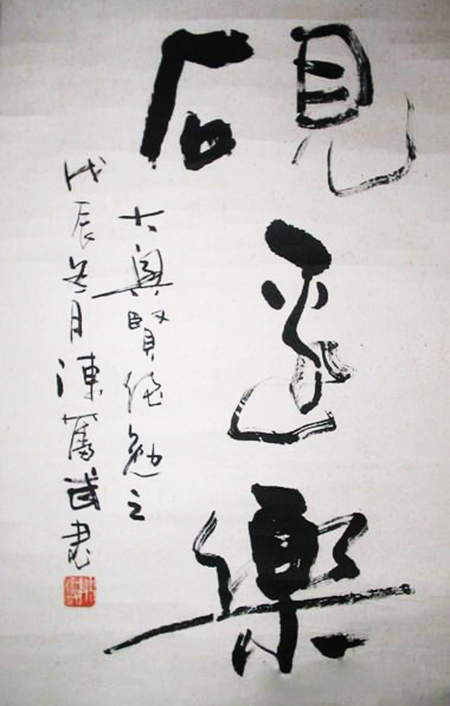 硯邊樂
大興賢侄勉之
戊辰冬月陳篤武書